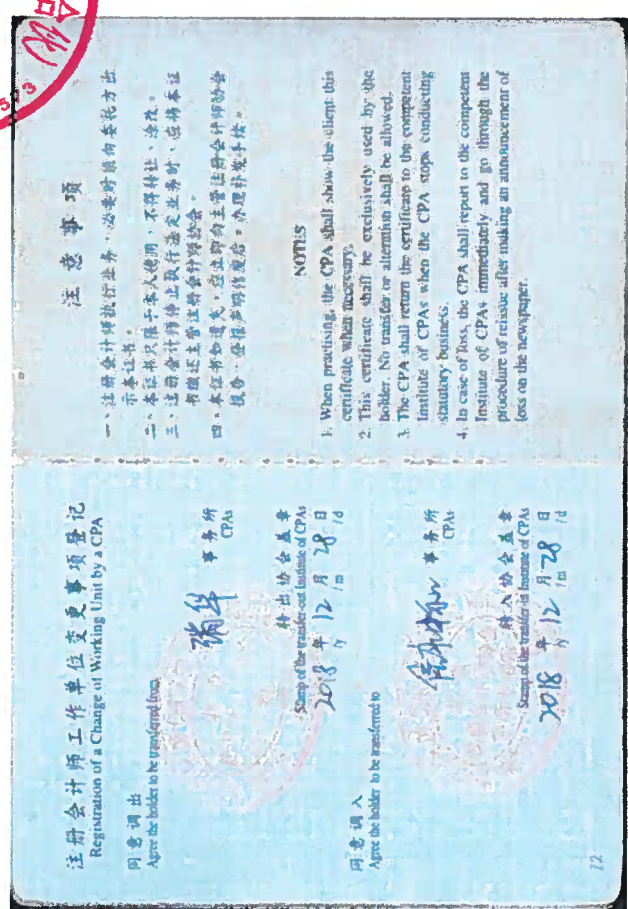 注册会计师工作单位变更事项登记
Registration of a Change of Working Unit by a CPA
同意调出
Agree the holder to be transferred from
瑞华
事务所
CPAs
转出协会盖章
Stamp of the transfer-out Institute of CPAs
2018 年 12 月 28 日
/y /m /d
同意调入
Agree the holder to be transferred to
事务所
CPAs
转入协会盖章
Stamp of the transfer-in Institute of CPAs
2018 年 12 月 28 日
/y /m /d
12
注意事项
一、注册会计师执行业务，必要时须向委托方出
示本证书。
二、本证书只限于本人使用，不得转让、涂改。
三、注册会计师停止执行法定业务时，应将本证
书缴还主管注册会计师协会。
四、本证书如遗失，应立即向主管注册会计师协会
报告，登报声明作废后，办理补发手续。
NOTES
1. When practising, the CPA shall show the client this
certificate when necessary.
2. This certificate shall be exclusively used by the
holder. No transfer or alteration shall be allowed.
3. The CPA shall return the certificate to the competent
Institute of CPAs when the CPA stops conducting
statutory business.
4. In case of loss, the CPA shall report to the competent
Institute of CPAs immediately and go through the
procedure of reissue after making an announcement of
loss on the newspaper.